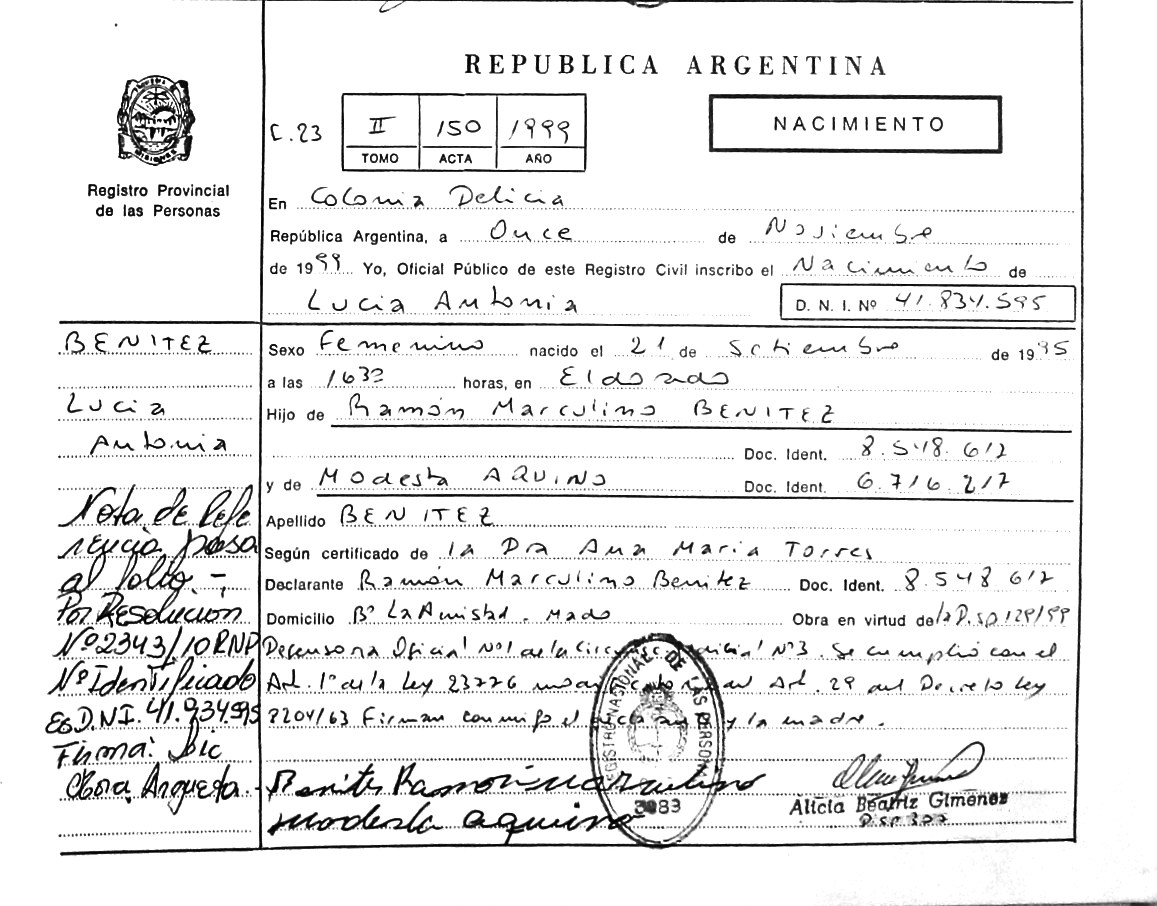 REPUBLICA ARGENTINA
C.23
II 150 1999
TOMO ACTA AÑO
NACIMIENTO
Registro Provincial
de las Personas
En Colonia Delicia
República Argentina, a Once de Noviembre
de 1999 Yo, Oficial Público de este Registro Civil inscribo el Nacimiento de
Lucia Antonia D. N. I. Nº 41.834.595
BENITEZ
Lucia
Antonia
Nota de Refe
rencia pasa
al folio. -
Por Resolución
Nº 2343/10 RNP
Nº Identificado
Es D.N.I. 41.934.595
Firma: Lic
Clora Argueta.
Sexo Femenino nacido el 21 de Setiembre de 1995
a las 1630 horas, en Eldorado
Hijo de Ramón Marculino BENITEZ
Doc. Ident. 8.548.612
y de Modesta AQUINO Doc. Ident. 6.716.217
Apellido BENITEZ
Según certificado de la Dra Ana Maria Torres
Declarante Ramón Marculino Benitez Doc. Ident. 8.548.612
Domicilio Bº La Amistad. Mado Obra en virtud de la Disp 129/99
Defensora Oficial Nº1 de la Nº3. Se cumplió con el
Art. 1º de la Ley 23776 Art. 29 del Decreto Ley
8204/63 Firman conmigo el y la madre.
REGISTRO NACIONAL DE LAS PERSONAS
3083
Benitez Ramon Marculino
modesta aquino
Alicia Beatriz Gimenez
Disp 327